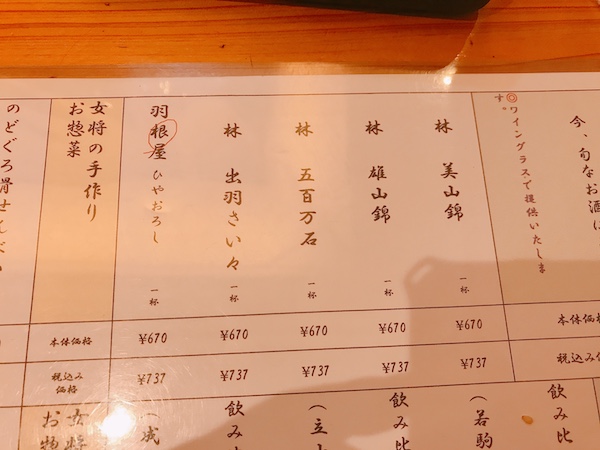 今、旬なお酒は
◎ワイングラスで提供いたしま
す。
本体価格
税込み
林 美山錦 一杯
¥670
¥737
林 雄山錦 一杯
¥670
¥737
林 五百万石 一杯
¥670
¥737
林 出羽さい々 一杯
¥670
¥737
羽根屋 ひやおろし 一杯
¥670
¥737
女将の手作り
お惣菜
本体価格
税込み
価格
のどぐろ骨せんべい
飲み比
(若駒
飲み比
(立山
飲み
(成
女将
お惣